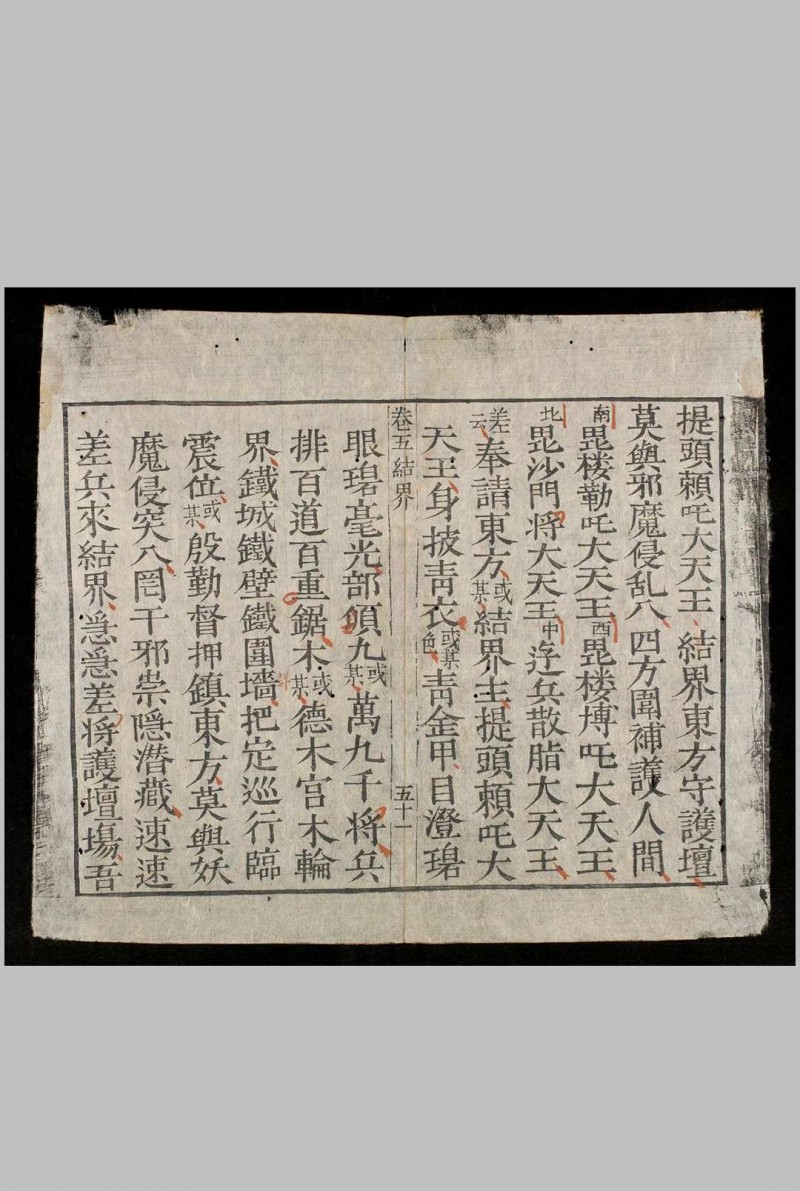 提頭賴吒大天王結界東方守護壇
莫與邪魔侵乱入四方圍補護人間
南毘楼勒吒大天王西毘楼博吒大天王
北毘沙門將大天王中逆兵散脂大天王
差云奉請東方或某結界主提頭賴吒大
天王身披靑衣或某色靑金甲目澄碧
卷五結界 五十一
眼碧毫光部領九或某萬九千將兵
排百道百重鋸木或某德木宫木輪
界鐵城鐵壁鐵圍墻把定巡行臨
震位或某殷勤督押鎮東方莫與妖
魔侵突入罔干邪祟隱潜藏速速
差兵來結界急急差將護壇塲吾